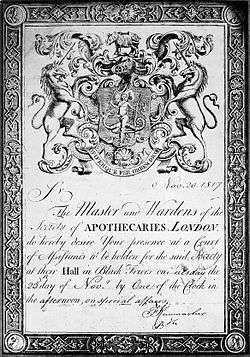 Nov. 20. 1817
Sr.
The Master and Wardens of the
Society of APOTHECARIES, LONDON,
do hereby desire Your presence at a Court
of Assistants to be holden for the said Society
at their Hall in Black Friers on
day of Novr. by One of the Clock in
the afternoon, on special affairs